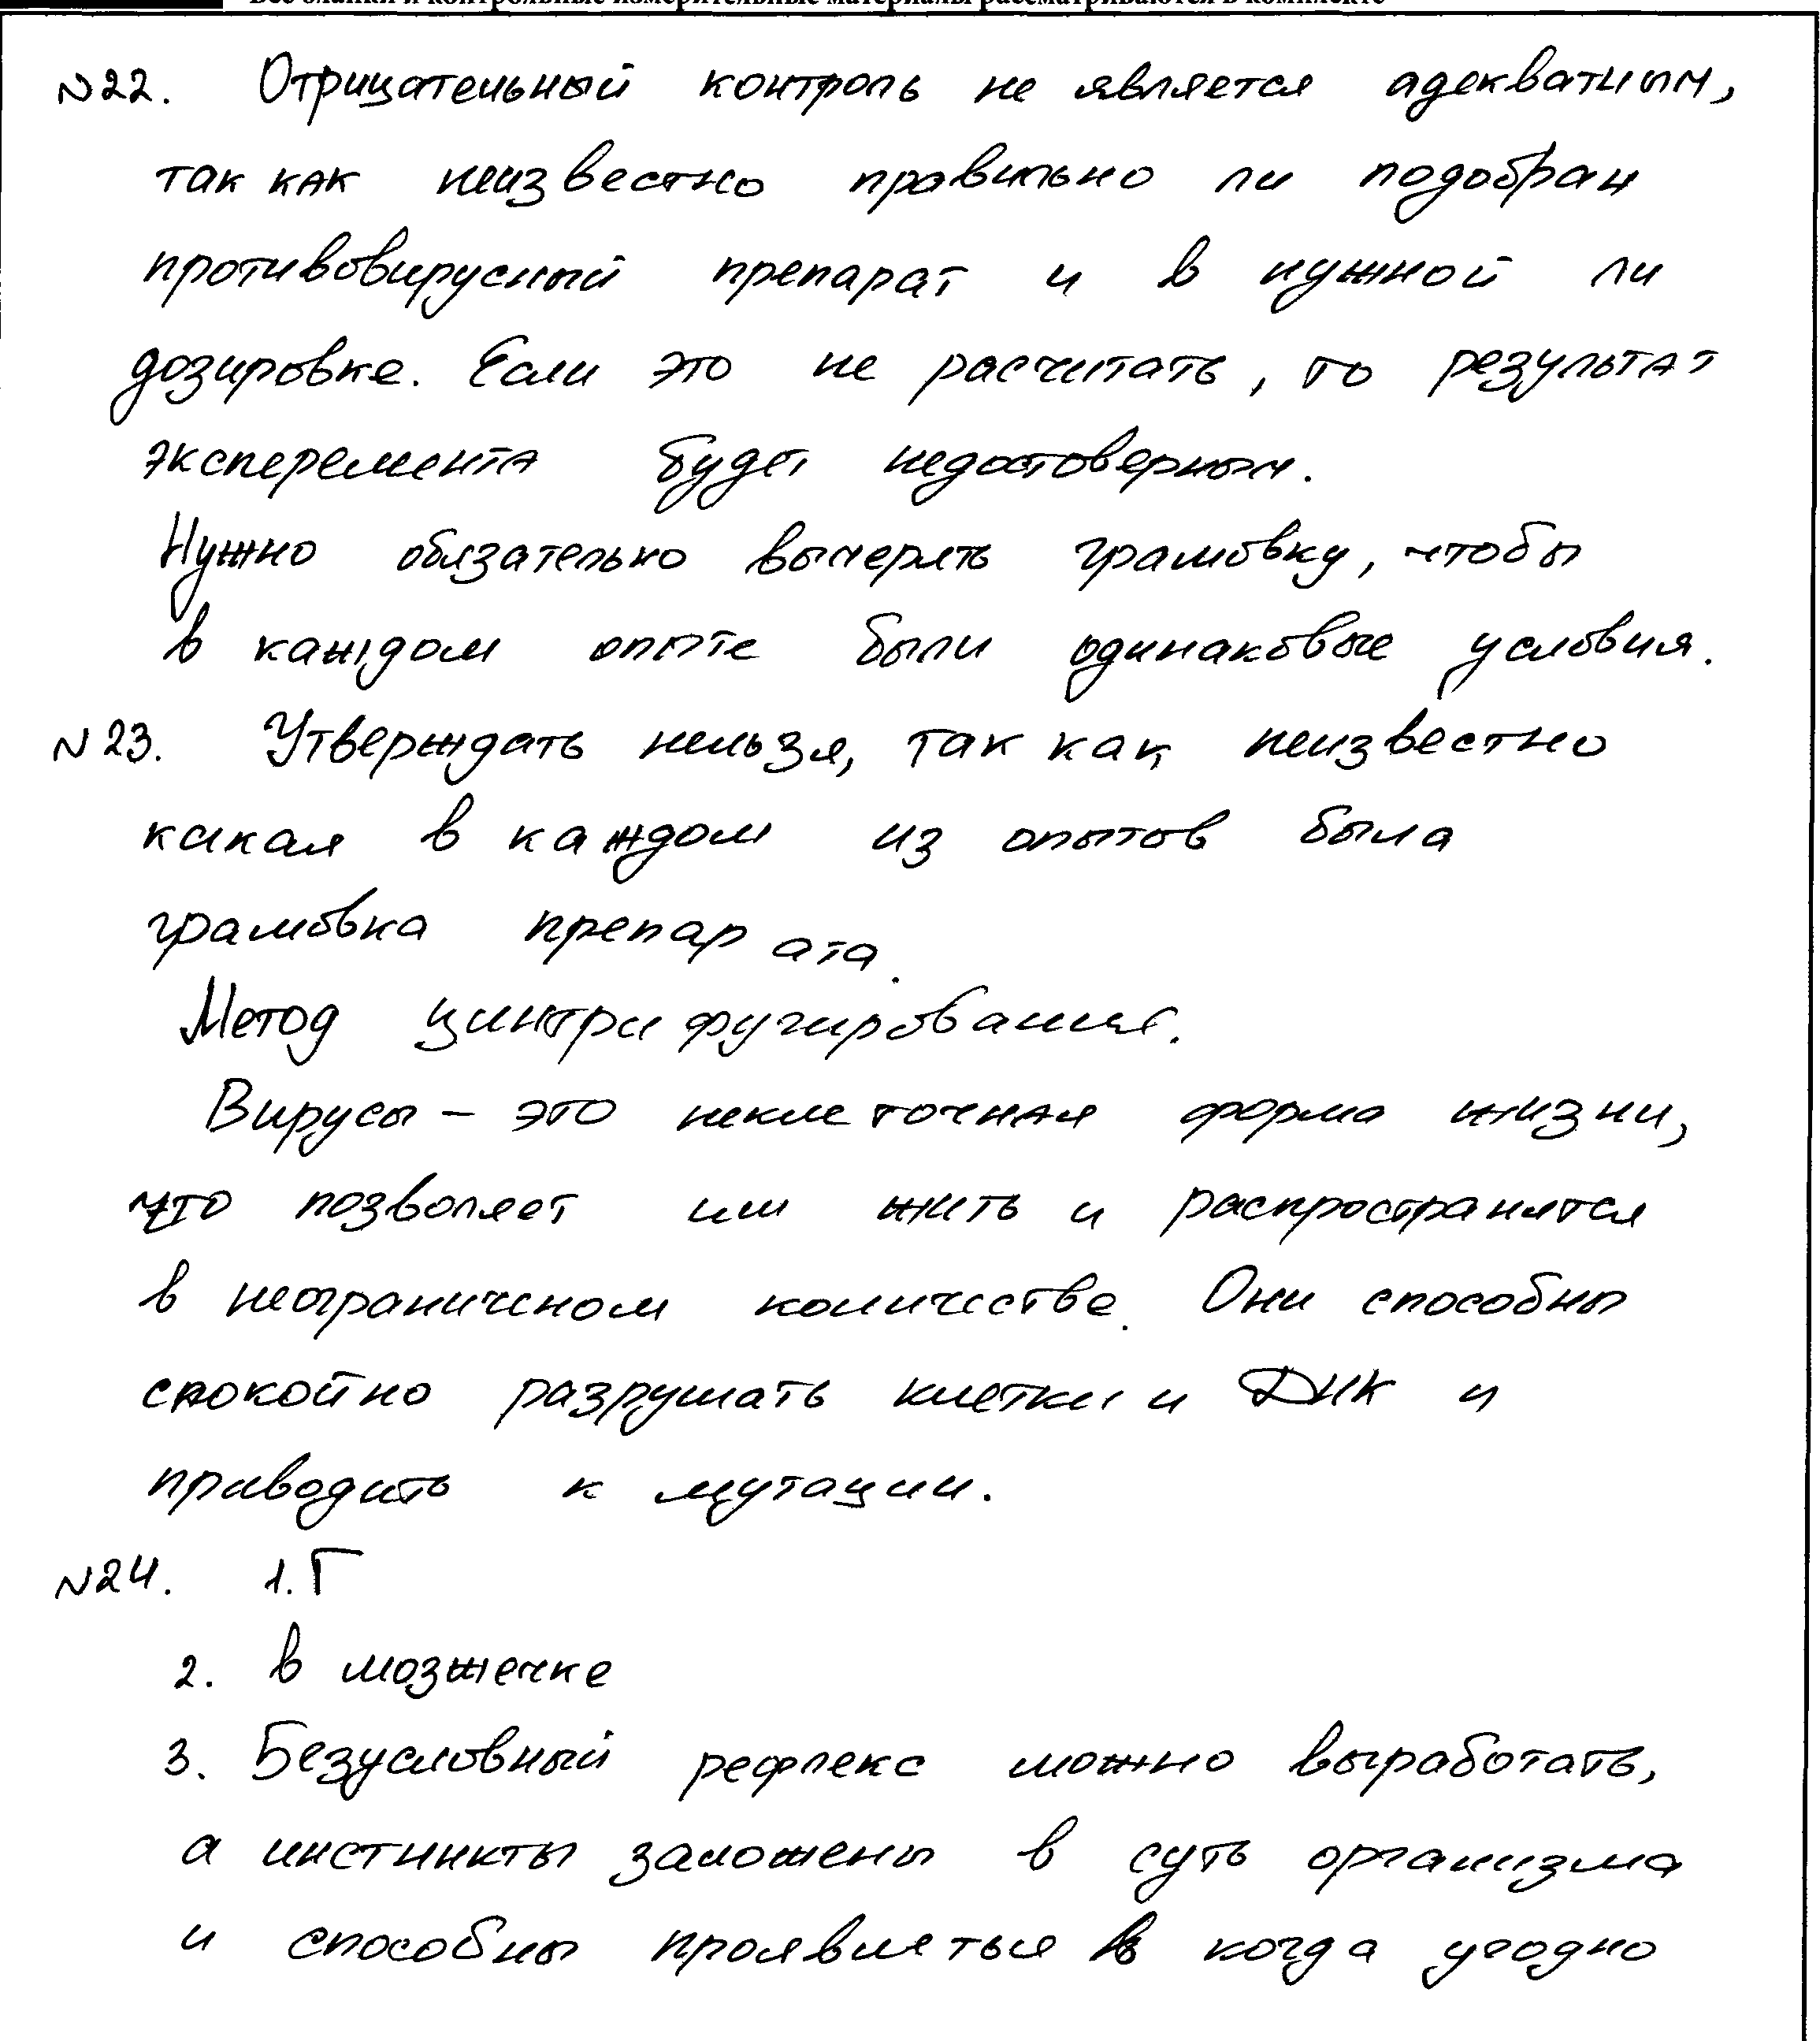 Все бланки и контрольные измерительные материалы рассматриваются в комплекте
№22. Отрицательный контроль не является адекватным,
так как неизвестно правильно ли подобран
противовирусный препарат и в нужной ли
дозировке. Если это не расчитать, то результат
эксперемента будет недостоверным.
Нужно обязательно вымерять грамовку, чтобы
в каждом опыте были одинаковые условия.
№23. Утверждать нельзя, так как неизвестно
какая в каждом из опытов была
грамовка препарата.
Метод центрифугирования.
Вирусы – это неклеточная форма жизни,
что позволяет им жить и распространятся
в неограниченом количестве. Они способны
спокойно разрушать клетки и ДНК и
приводить к мутации.
№24. 1. Г
2. в мозжечке
3. Безусловный рефлекс можно выработать,
а инстинкты заложены в суть организма
и способны проявляться когда угодно